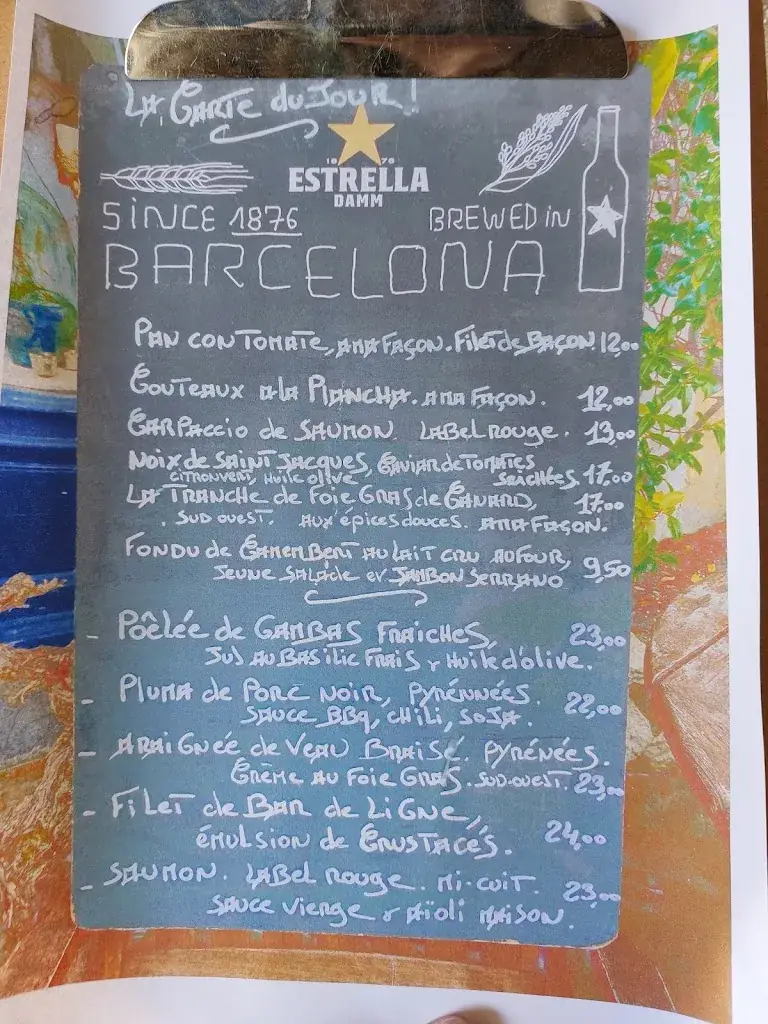 La Carte du Jour !
18 76
ESTRELLA
DAMM
SINCE 1876 BREWED IN
BARCELONA
Pan con Tomate, a ma façon. Filet de Bacon 12,00
Couteaux a la Plancha. a ma façon. 12,00
Carpaccio de Saumon Label rouge. 13,00
Noix de Saint Jacques, Caviar de Tomates
citron vert, Huile olive Seachées 17,00
La Tranche de Foie Gras de Canard, 17,00
. Sud ouest. aux épices douces. a ma façon.
Fondu de Camembert au lait cru au four,
Jeune salade et Jambon Serrano 9,50
- Poêlée de Gambas Fraiches, 23,00
Jus au Basilic Frais & Huile d'olive.
- Pluma de Porc noir, Pyrénnées. 22,00
Sauce BBQ, chili, soja.
- Araignée de Veau Braisé. Pyrénées.
Crème au Foie Gras. Sud-ouest. 23,00
- Filet de Bar de Ligne,
émulsion de Crustacés. 24,00
- Saumon. Label rouge. Mi-cuit. 23,00
Sauce vierge & aïoli maison.